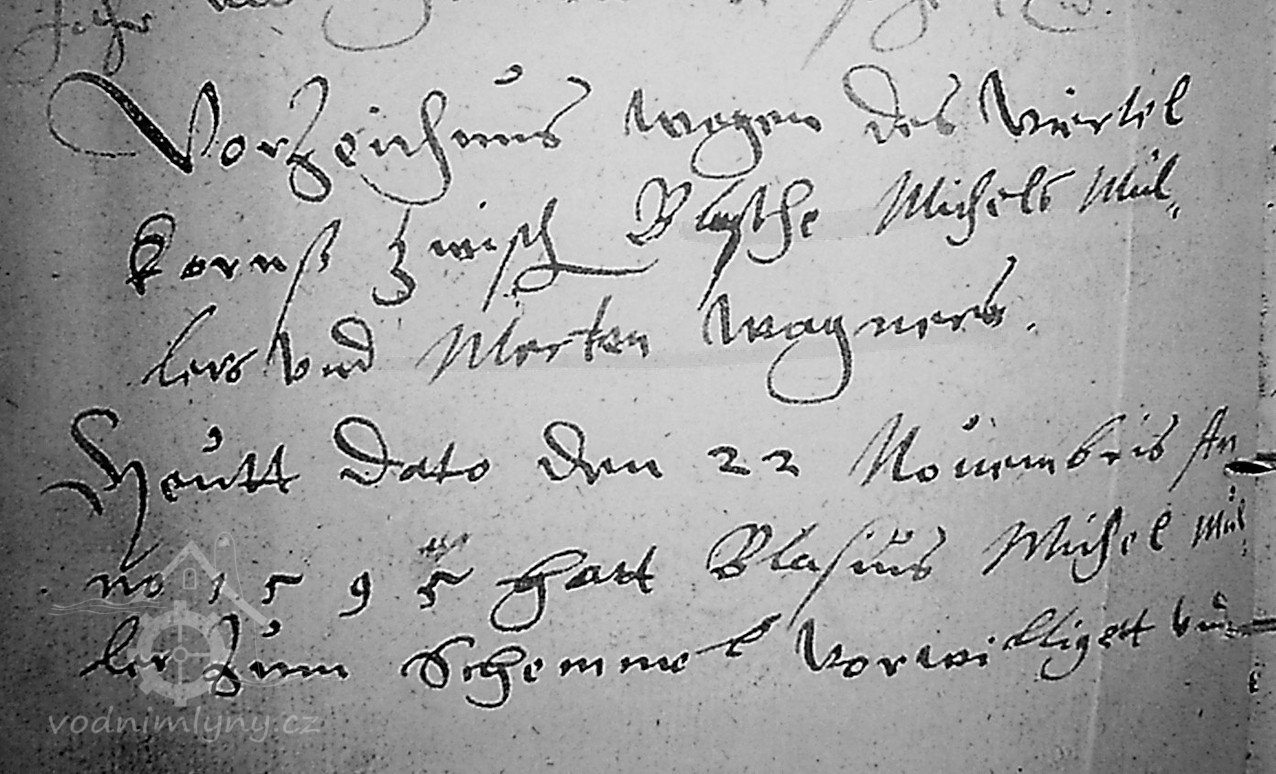 Vorzeichnus wegen des Viertel
Kornß Zwisch Blasche Michels Mül-
lers Vnd Merten Wagners.
Heutt Dato den 22 Nouembris An
no 1595 Hatt Blasius Michel Mül-
ler Zum Schemmel Vorwilligett
vodnimlyny.cz